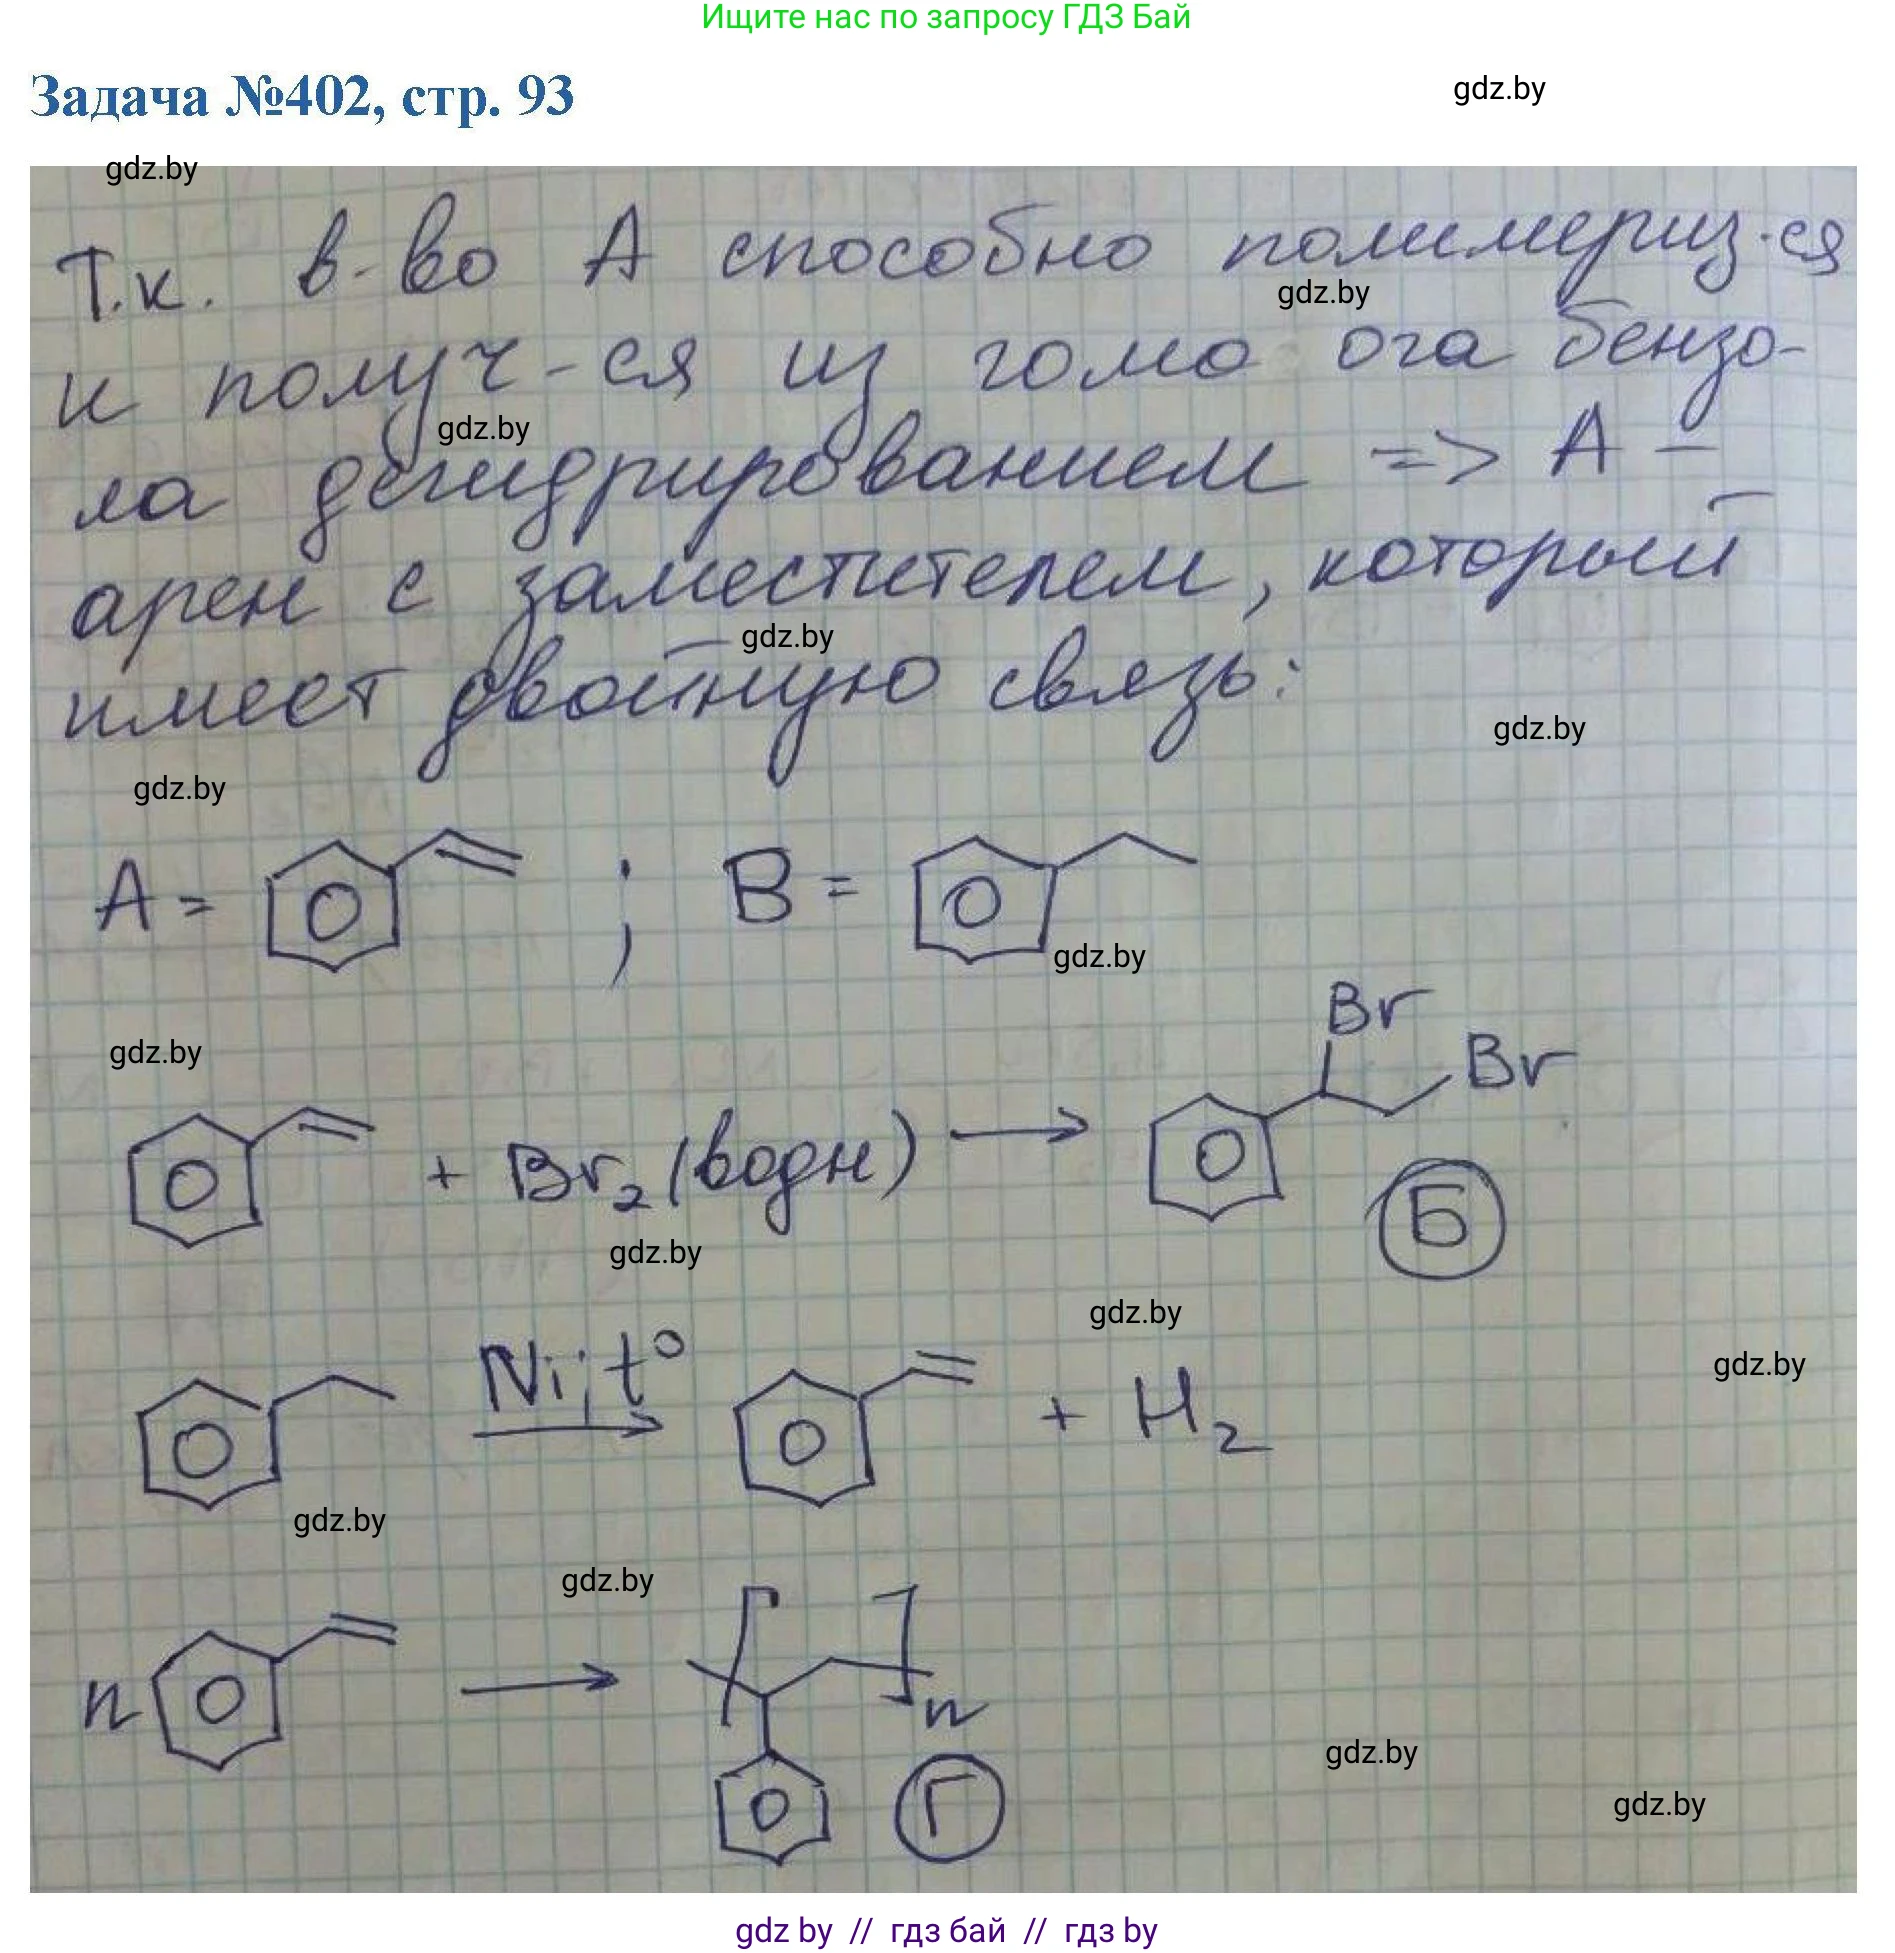 Ищите нас по запросу ГДЗ Бай
Задача №402, стр. 93
gdz.by
gdz.by
Т.к. в-во А способно полимериз-ся
gdz.by
и получ-ся из гомо ога бензо-
gdz.by
ла дегидрированием => А –
арен с заместителем, который
gdz.by
имеет двойную связь:
gdz.by
gdz.by
А = ; В =
gdz.by
Br
Br
gdz.by
+ Br2 (водн) →
Б
gdz.by
gdz.by
Ni; t°
gdz.by
+ H2
gdz.by
gdz.by
n → [ ]n
Г
gdz.by
gdz.by
gdz by // гдз бай // гдз by